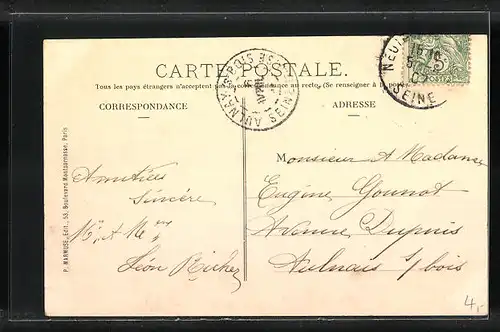 CARTE POSTALE.
Tous les pays étrangers n'acceptent pas la correspondance au recto. (Se renseigner à la poste)
CORRESPONDANCE
ADRESSE
AULNAY-S-BOIS
SEINE
SEINE
5
P. MARMUSE, Edit., 53, Boulevard Montparnasse, Paris
Amitiés
Sincère
Mr & Me
Léon Richer
Monsieur & Madame
Eugène Gounot
Avenue Dupuis
Aulnais s/ bois
4,-